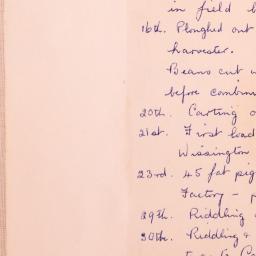 in field b
16th. Ploughed out
harvester.
Beans cut w
before combin
20th. Carting o
21st. First load
Wissington
23rd. 45 fat pig
Factory - p
29th. Riddling
30th. Riddling &